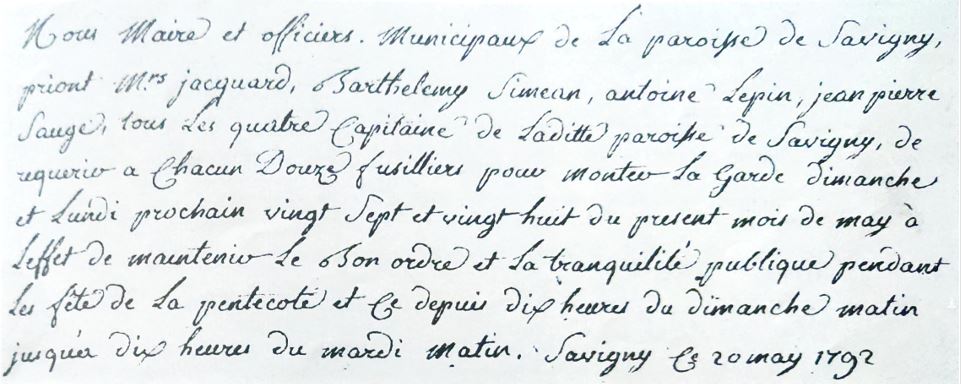 Nous Maire et officiers. Municipaux de La paroisse de Savigny,
priont Mrs jacquard, Barthelemy Simean, antoine Lepin, jean pierre
Sauge, tous Les quatre Capitaine de Laditte paroisse de Savigny, de
requerir a Chacun Douze fusilliers pour monter La Garde dimanche
et Lundi prochain vingt Sept et vingt huit du present mois de may à
Leffet de maintenir Le Bon ordre et La tranquilité publique pendant
Les fête de La pentecote et Ce depuis dix heures du dimanche matin
jusqu'a dix heures du mardi matin. Savigny Ce 20 may 1792